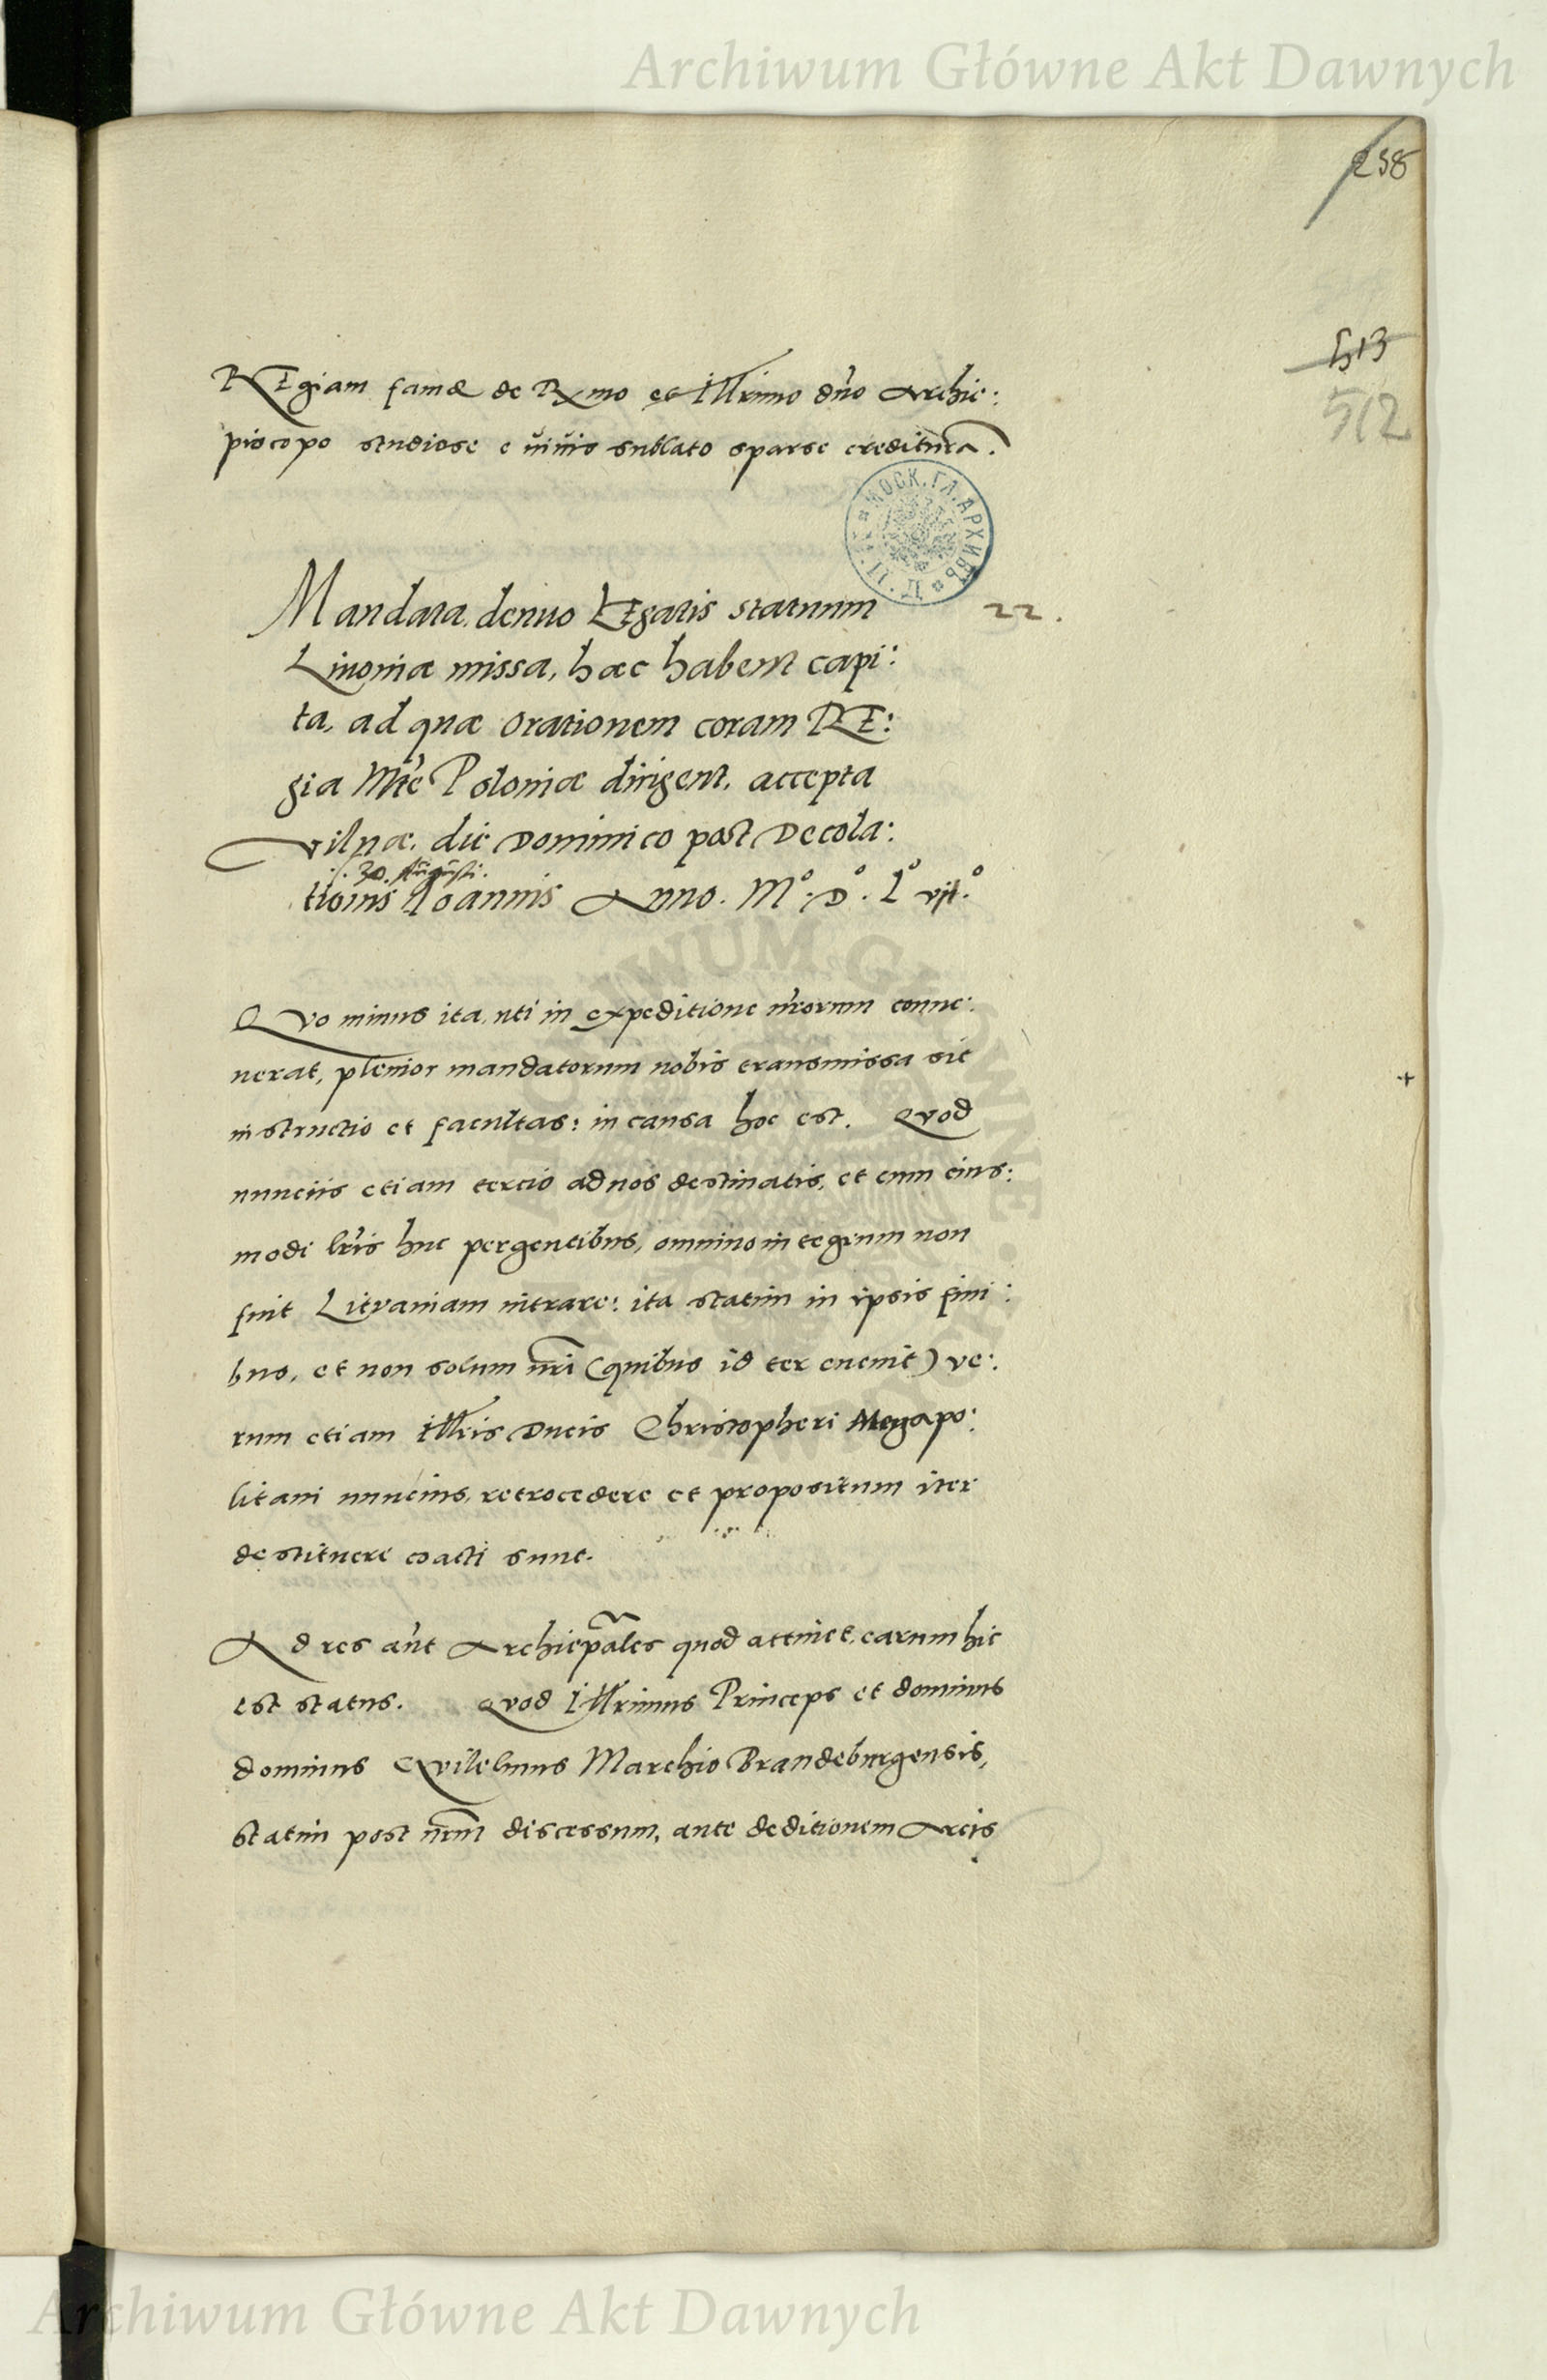 Archiwum Główne Akt Dawnych
258
513
512
REgiam famæ de Rxmo et Illrimo dño Archie:
piscopo studiose e viuis sublato sparse creditura.
МОСК. ГЛ. АРХИВЪ
Mandata denuo LEgatis statuum 22.
Liuoniæ missa, hæc habent capi:
ta, ad quæ orationem coram RE:
gia Mte Poloniæ dirigent, accepta
Vilnæ, die Dominico post Decola:
30. Augusti.
tionis Ioannis Anno. Mº. Dº. Lº vijº.
QVo minus ita, uti in expeditione nrorum conue:
nerat, plenior mandatorum nobis transmissa sit
instructio et facultas: in causa hoc est. Quod
nunciis etiam tercio ad nos destinatis, et cum eius:
modi lris huc pergentibus, omnino integrum non
fuit Lituaniam intrare: ita statim in ipsis fini:
bus, et non solum nri (quibus id ter euenit) ve:
rum etiam Illris Ducis Christopheri Megapo:
litani nuncius, retrocedere et propositum iter
destituere coacti sunt.
Ad res aut Archiepales quod attinet, earum hic
est status. Quod Illrimus Princeps et dominus
dominus Wilelmus Marchio Brandeburgensis,
statim post nrm discessum, ante deditionem Arcis
Archiwum Główne Akt Dawnych